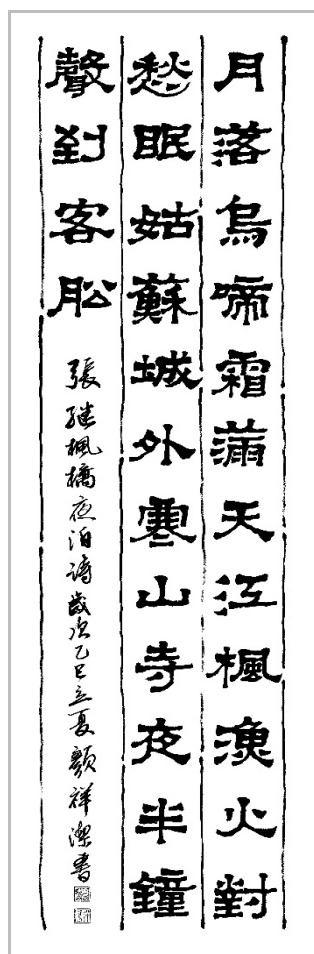 月落烏啼霜滿天江楓漁火對
愁眠姑蘇城外寒山寺夜半鐘
聲到客舩
張继楓橋夜泊詩歲次乙巳立夏顏祥潔書